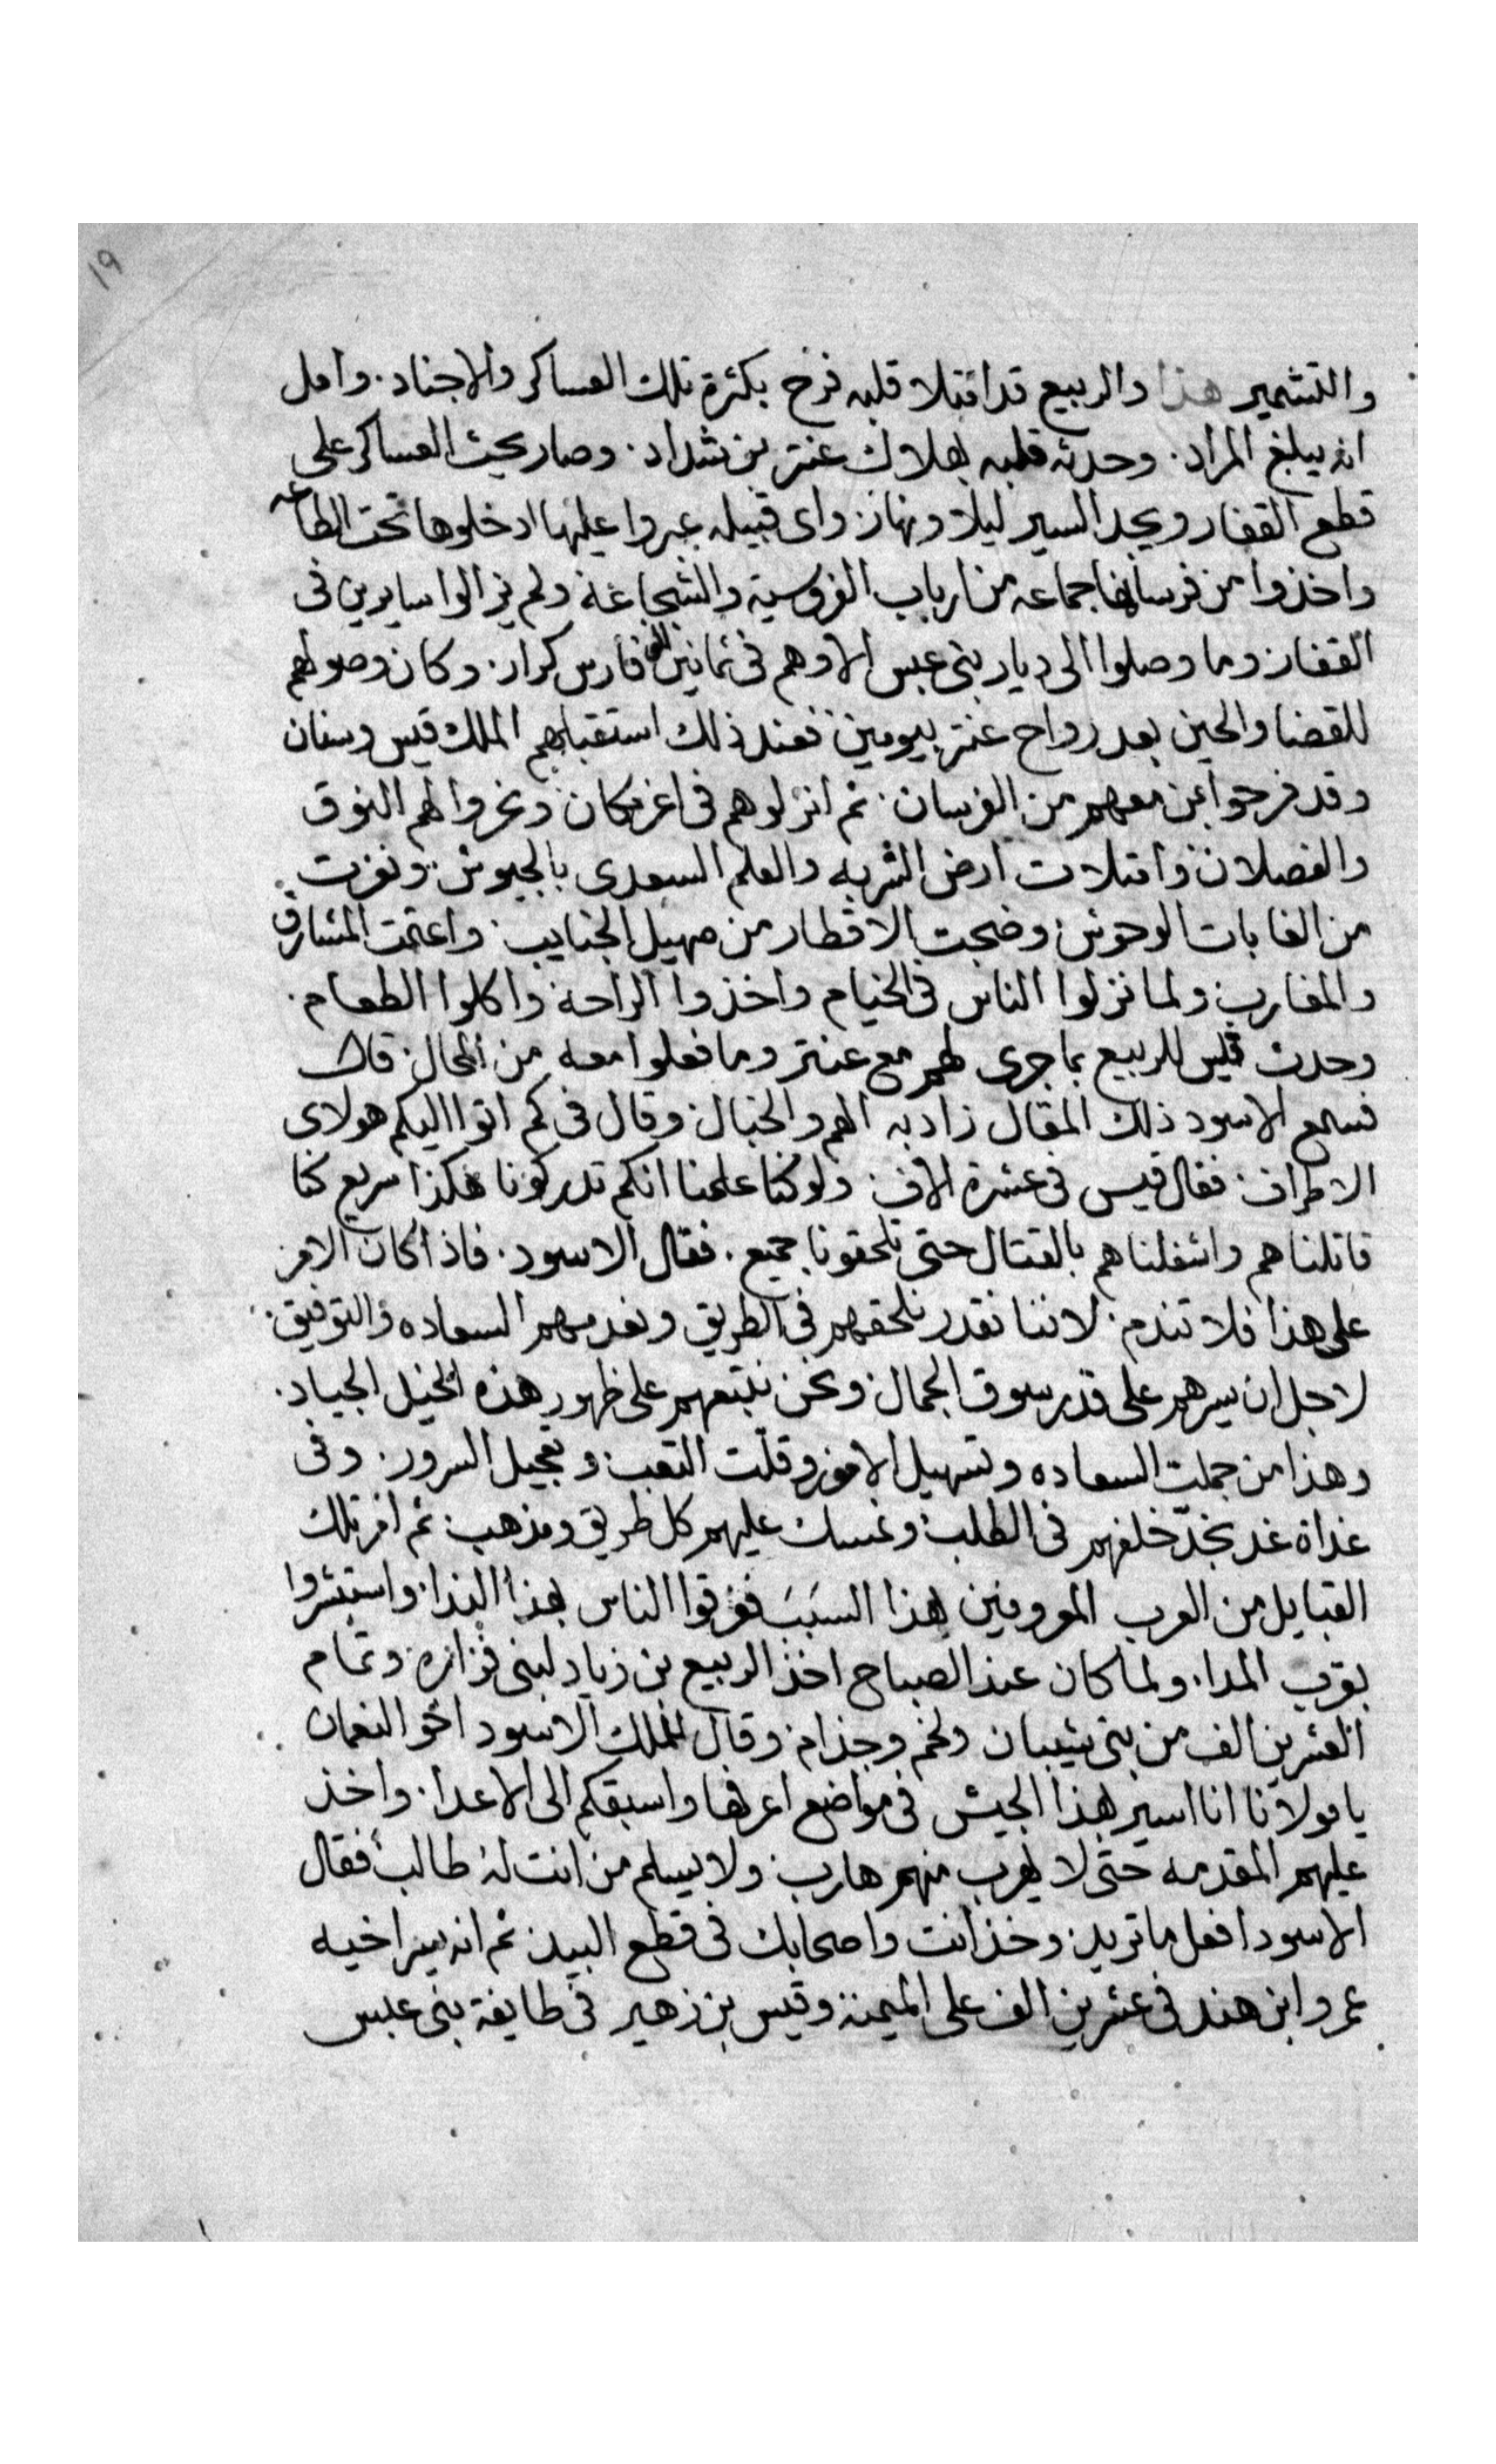 ١٩
والتشمير هذا والربيع قد امتلا قلبه فرح بكثرة تلك العساكر والاجناد. وامل
انه يبلغ المراد. وحدثه قلبه بهلاك عنتر بن شداد. وصار يحث العساكر على
قطع القفار ويجد السير ليلا ونهار. واى قبيله عبروا عليها ادخلوها تحت الطاعه
واخذوا من فرسانها جماعه من ارباب الفروسية والشجاعة ولم يزالوا سايرين فى
القفار. وما وصلوا الى ديار بنى عبس الا وهم فى ثمانين الف فارس كرار. وكان وصولهم
للقضا والحين بعد رواح عنتر بيومين. فعند ذلك استقبلهم الملك قيس وسنان
وقد فرحوا بمن معهم من الفرسان. ثم انزلوهم فى اعز مكان ونحروا لهم النوق
والفصلان. وامتلات ارض الشربه والعلم السعدى بالجيوش. ونفرت
من الغابات الوحوش. وضجت الاقطار من صهيل الجنايب. واعتمت المشارق
والمغارب. ولما نزلوا الناس فى الخيام واخذوا الراحة واكلوا الطعام.
وحدث قيس للربيع بما جرى لهم مع عنتر وما فعلوا معه من المحال. قال
فسمع الاسود ذلك المقال زاد به الهم والخبال. وقال فى كم اتوا اليكم هولاى
الاطراف. فقال قيس فى عشرة الاف. ولو كنا علمنا انكم تدركونا هكذا سريع كنا
قاتلناهم واشغلناهم بالقتال حتى تلحقونا جميع. فقال الاسود. فاذا كان الامر
على هذا فلا تندم. لاننا نقدر نلحقهم فى الطريق ونعدمهم السعاده والتوفيق.
لاجل ان سيرهم على قدر سوق الجمال. ونحن نتبعهم على ظهور هذه الخيل الجياد.
وهذا من جملت السعاده وتسهيل الامور وقلّت التعب. وتعجيل السرور. وفى
غداة غد نجدّ خلفهم فى الطلب. ونمسك عليهم كل طريق ومذهب. ثم امر تلك
القبايل من العرب المعروفين بهذا السبَبَ فعرفوا الناس بهذا الندا. واستبشروا
بقرب المدا. ولما كان عند الصباح اخذ الربيع بن زياد لبنى فزاره. وتمام
العشرين الف من بنى شيبان ولخم وجذام. وقال للملك الاسود اخو النعمان
يا مولانا انا اسير بهذا الجيش فى مواضع اعرفها واسبقكم الى الاعدا. واخذ
عليهم المقدمه حتى لا يهرب منهم هارب. ولا يسلم من انت له طالب. فقال
الاسود افعل ما تريد. وخذ انت واصحابك فى قطع البيد. ثم انه سير اخيه
عمرو ابن هند فى عشرين الف على الميمنة وقيس بن زهير فى طايفة بنى عبس